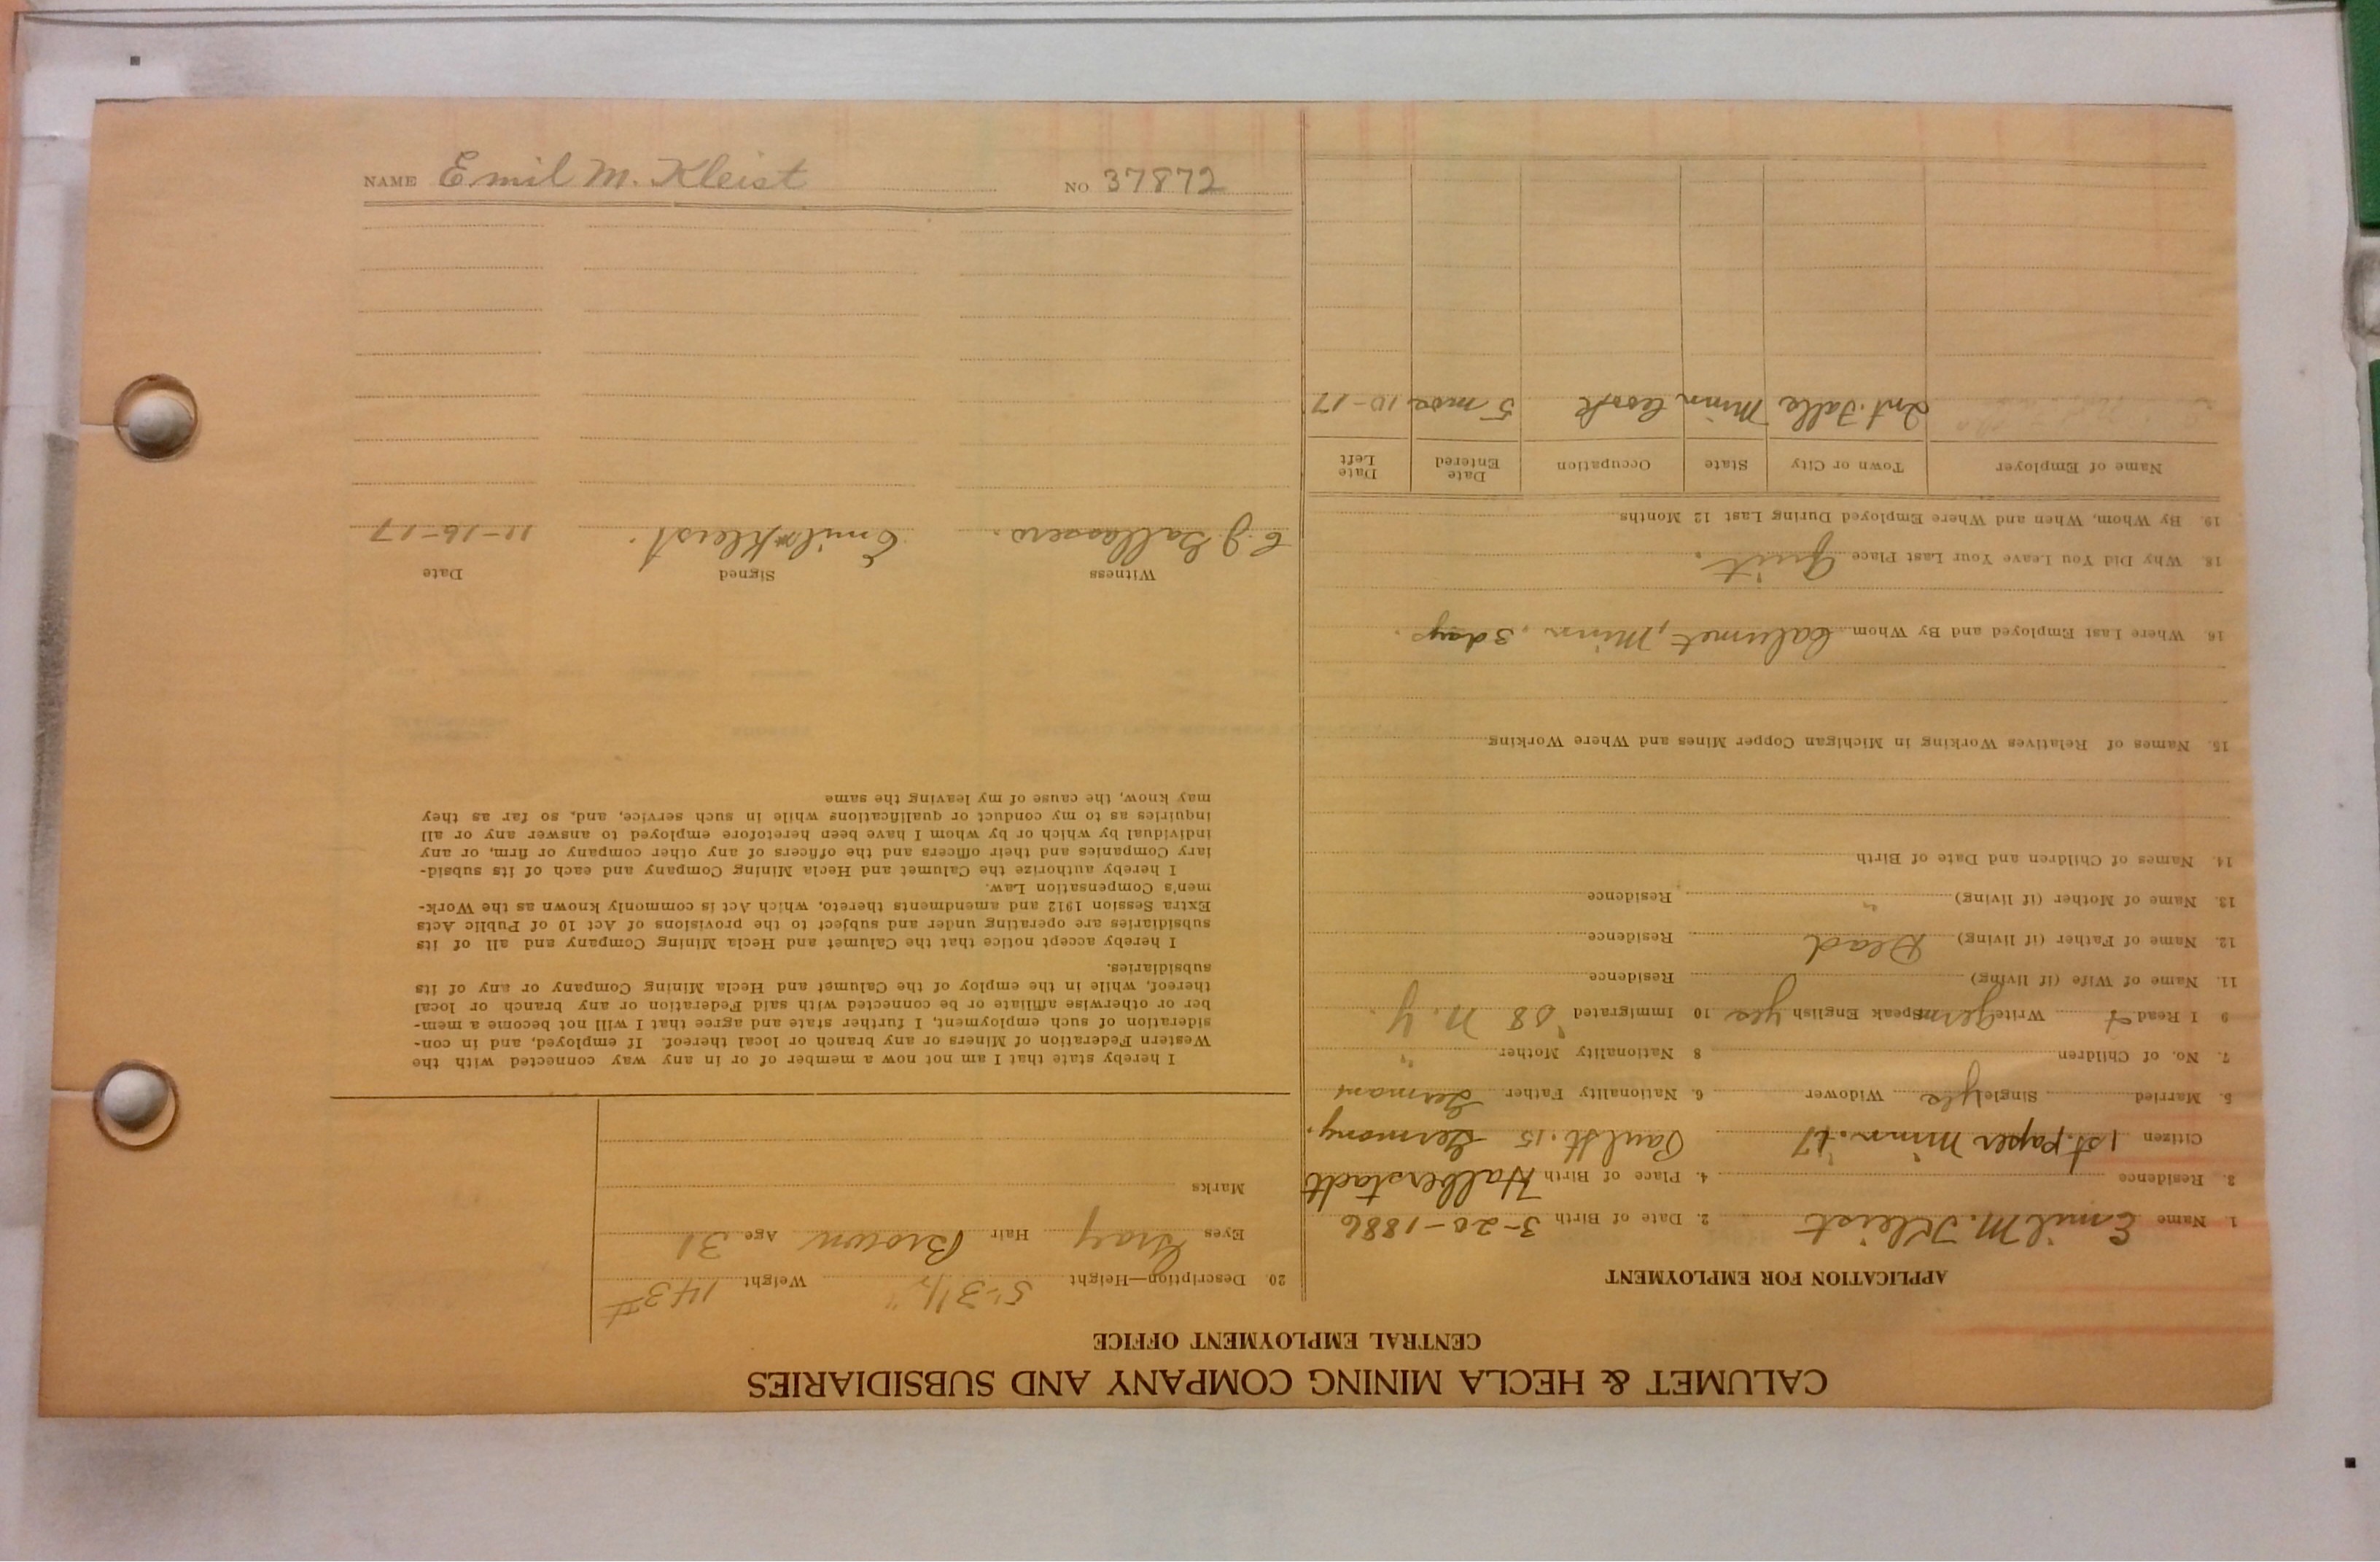 CALUMET & HECLA MINING COMPANY AND SUBSIDIARIES
CENTRAL EMPLOYMENT OFFICE
APPLICATION FOR EMPLOYMENT
1. Name Emil M. Kleist 2. Date of Birth 3-20-1886
3. Residence 4. Place of Birth Halberstadt
Citizen 1st. paper Minn. '17 Paul St. 15 Germany.
5. Married Single yes Widower 6. Nationality Father German
7. No. of Children 8 Nationality Mother "
9 I Read & Write Germ Speak English yes 10 Immigrated '08 N. Y.
11. Name of Wife (if living) Residence
12. Name of Father (if living) Dead Residence
13. Name of Mother (if living) " Residence
14. Names of Children and Date of Birth
15. Names of Relatives Working in Michigan Copper Mines and Where Working
16. Where Last Employed and By Whom Calumet, Minn, 3 days.
18. Why Did You Leave Your Last Place Quit.
19. By Whom, When and Where Employed During Last 12 Months
Name of Employer Town or City State Occupation Date Entered Date Left
Int. Falls Minn Cook 5 mos 10-17
20. Description—Height 5'-3 1/2" Weight 143#
Eyes Gray Hair Brown Age 31
Marks
I hereby state that I am not now a member of or in any way connected with the
Western Federation of Miners or any branch or local thereof. If employed, and in con-
sideration of such employment, I further state and agree that I will not become a mem-
ber or otherwise affiliate or be connected with said Federation or any branch or local
thereof, while in the employ of the Calumet and Hecla Mining Company or any of its
subsidiaries.
I hereby accept notice that the Calumet and Hecla Mining Company and all of its
subsidiaries are operating under and subject to the provisions of Act 10 of Public Acts
Extra Session 1912 and amendments thereto, which Act is commonly known as the Work-
men's Compensation Law.
I hereby authorize the Calumet and Hecla Mining Company and each of its subsid-
iary Companies and their officers and the officers of any other company or firm, or any
individual by which or by whom I have been heretofore employed to answer any or all
inquiries as to my conduct or qualifications while in such service, and, so far as they
may know, the cause of my leaving the same
Witness Signed Date
Emil M Kleist. 11-16-17
NAME Emil M. Kleist NO 37872